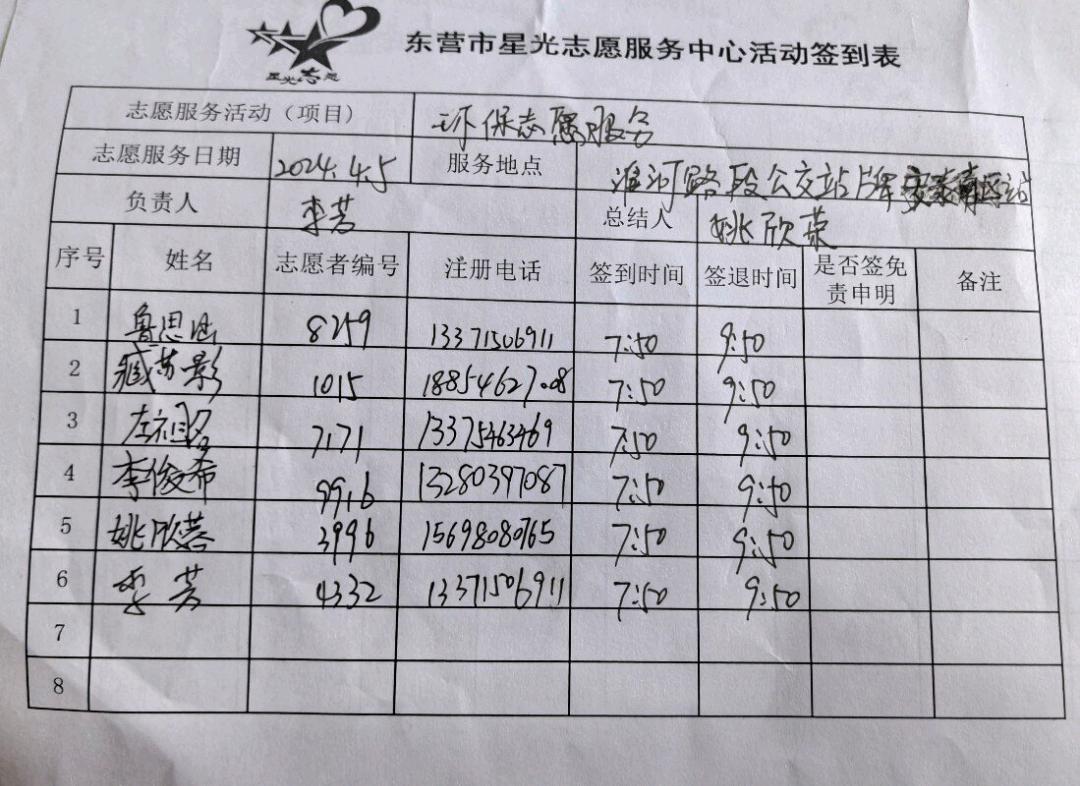 星光志愿
东营市星光志愿服务中心活动签到表
志愿服务活动（项目） 环保志愿服务
志愿服务日期 2024.4.5 服务地点 淮河路段公交站牌安泰南区站
负责人 李芳 总结人 姚欣蓉
序号 姓名 志愿者编号 注册电话 签到时间 签退时间 是否签免责申明 备注
1 鲁思 8259 13371506911 7:50 9:50
2 臧梦影 1015 18854627.08 7:50 9:50
3 左祖名 7171 13375463469 7:50 9:50
4 李俊希 9916 13280397087 7:50 9:50
5 姚欣蓉 3996 15698080765 7:50 9:50
6 李芳 4332 13371506911 7:50 9:50
7
8